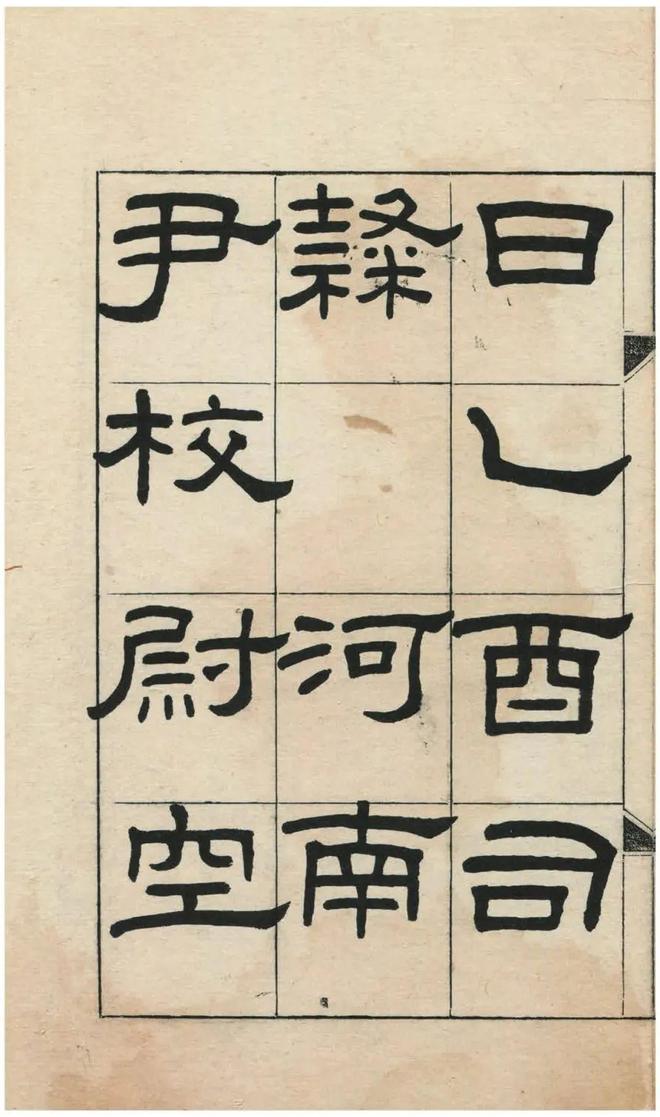 日乙酉司
隸 河南
尹校尉空